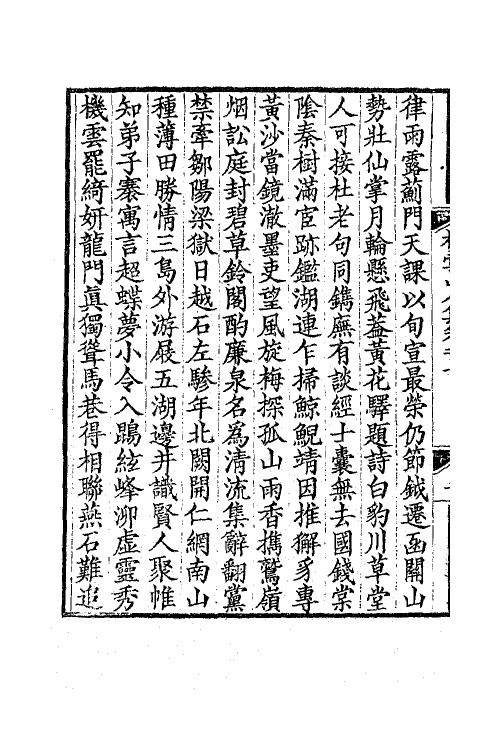 律雨露薊門天課以旬宣最榮仍節鉞遷函關山
勢壯仙掌月輪懸飛蓋黃花驛題詩白豹川草堂
人可接杜老句同鐫廡有談經士囊無去國錢棠
陰秦樹滿宦跡鑑湖連乍掃鯨鯢靖因推獬豸專
黃沙當鏡澈墨吏望風旋梅探孤山雨香擕鷲嶺
烟訟庭封碧草鈴閣酌廉泉名爲清流集辭翻黨
禁牽鄒陽梁獄日越石左驂年北闕開仁網南山
種薄田勝情三島外游屐五湖邊井識賢人聚帷
知弟子褰寓言超蝶夢小令入鵾絃峰泖虛靈秀
機雲罷綺妍龍門真獨聳馬巷得相聯燕石難追